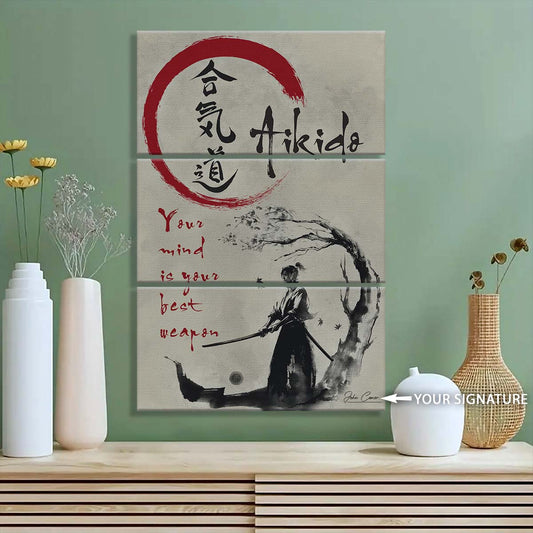 合
気
道
Aikido
Your
mind
is your
best
weapon
YOUR SIGNATURE